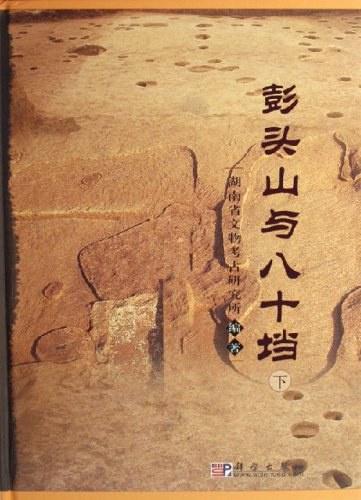 彭头山与八十垱
下
湖南省文物考古研究所 编著
科学出版社